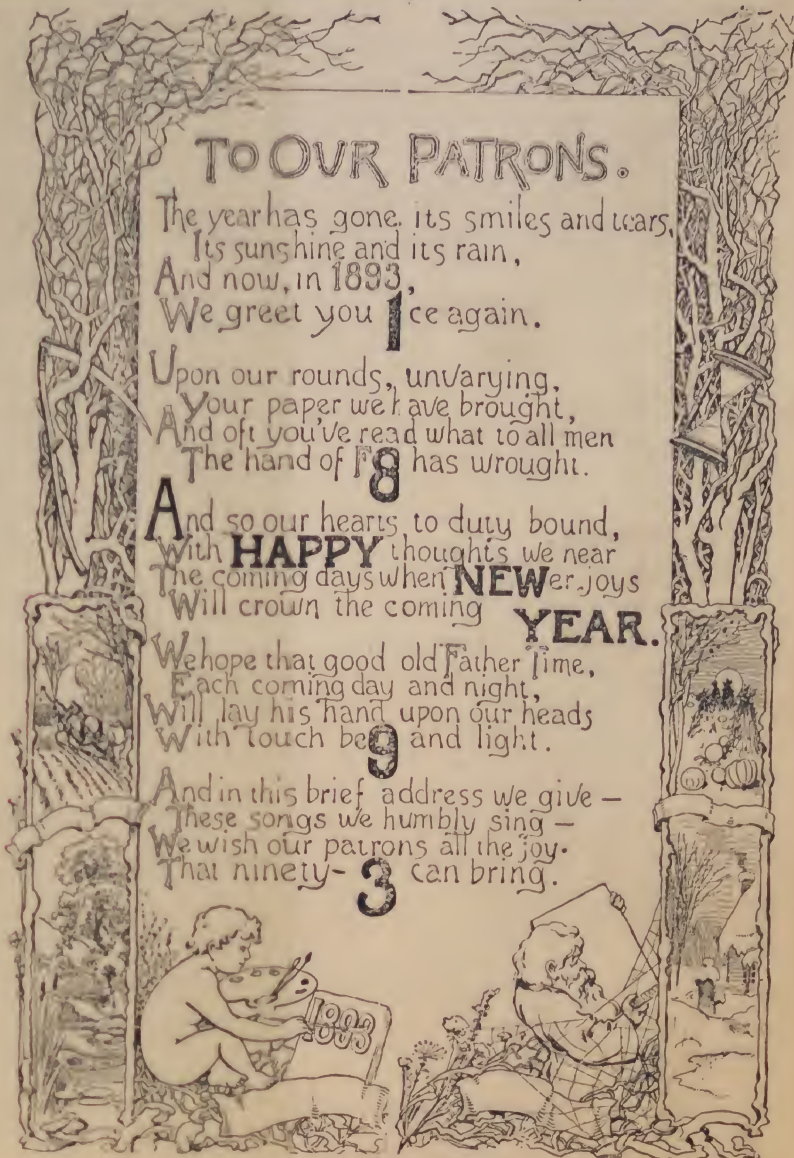 TO OUR PATRONS.
The year has gone, its smiles and tears,
Its sunshine and its rain,
And now, in 1893,
We greet you 1ce again.
Upon our rounds, unvarying,
Your paper we have brought,
And oft you've read what to all men
The hand of F8 has wrought.
And so our hearts to duty bound,
With HAPPY thoughts we near
The coming days when NEWer joys
Will crown the coming YEAR.
We hope that good old Father Time,
Each coming day and night,
Will lay his hand upon our heads
With touch be9 and light.
And in this brief address we give —
These songs we humbly sing —
We wish our patrons all the joy.
That ninety-3 can bring.
1893